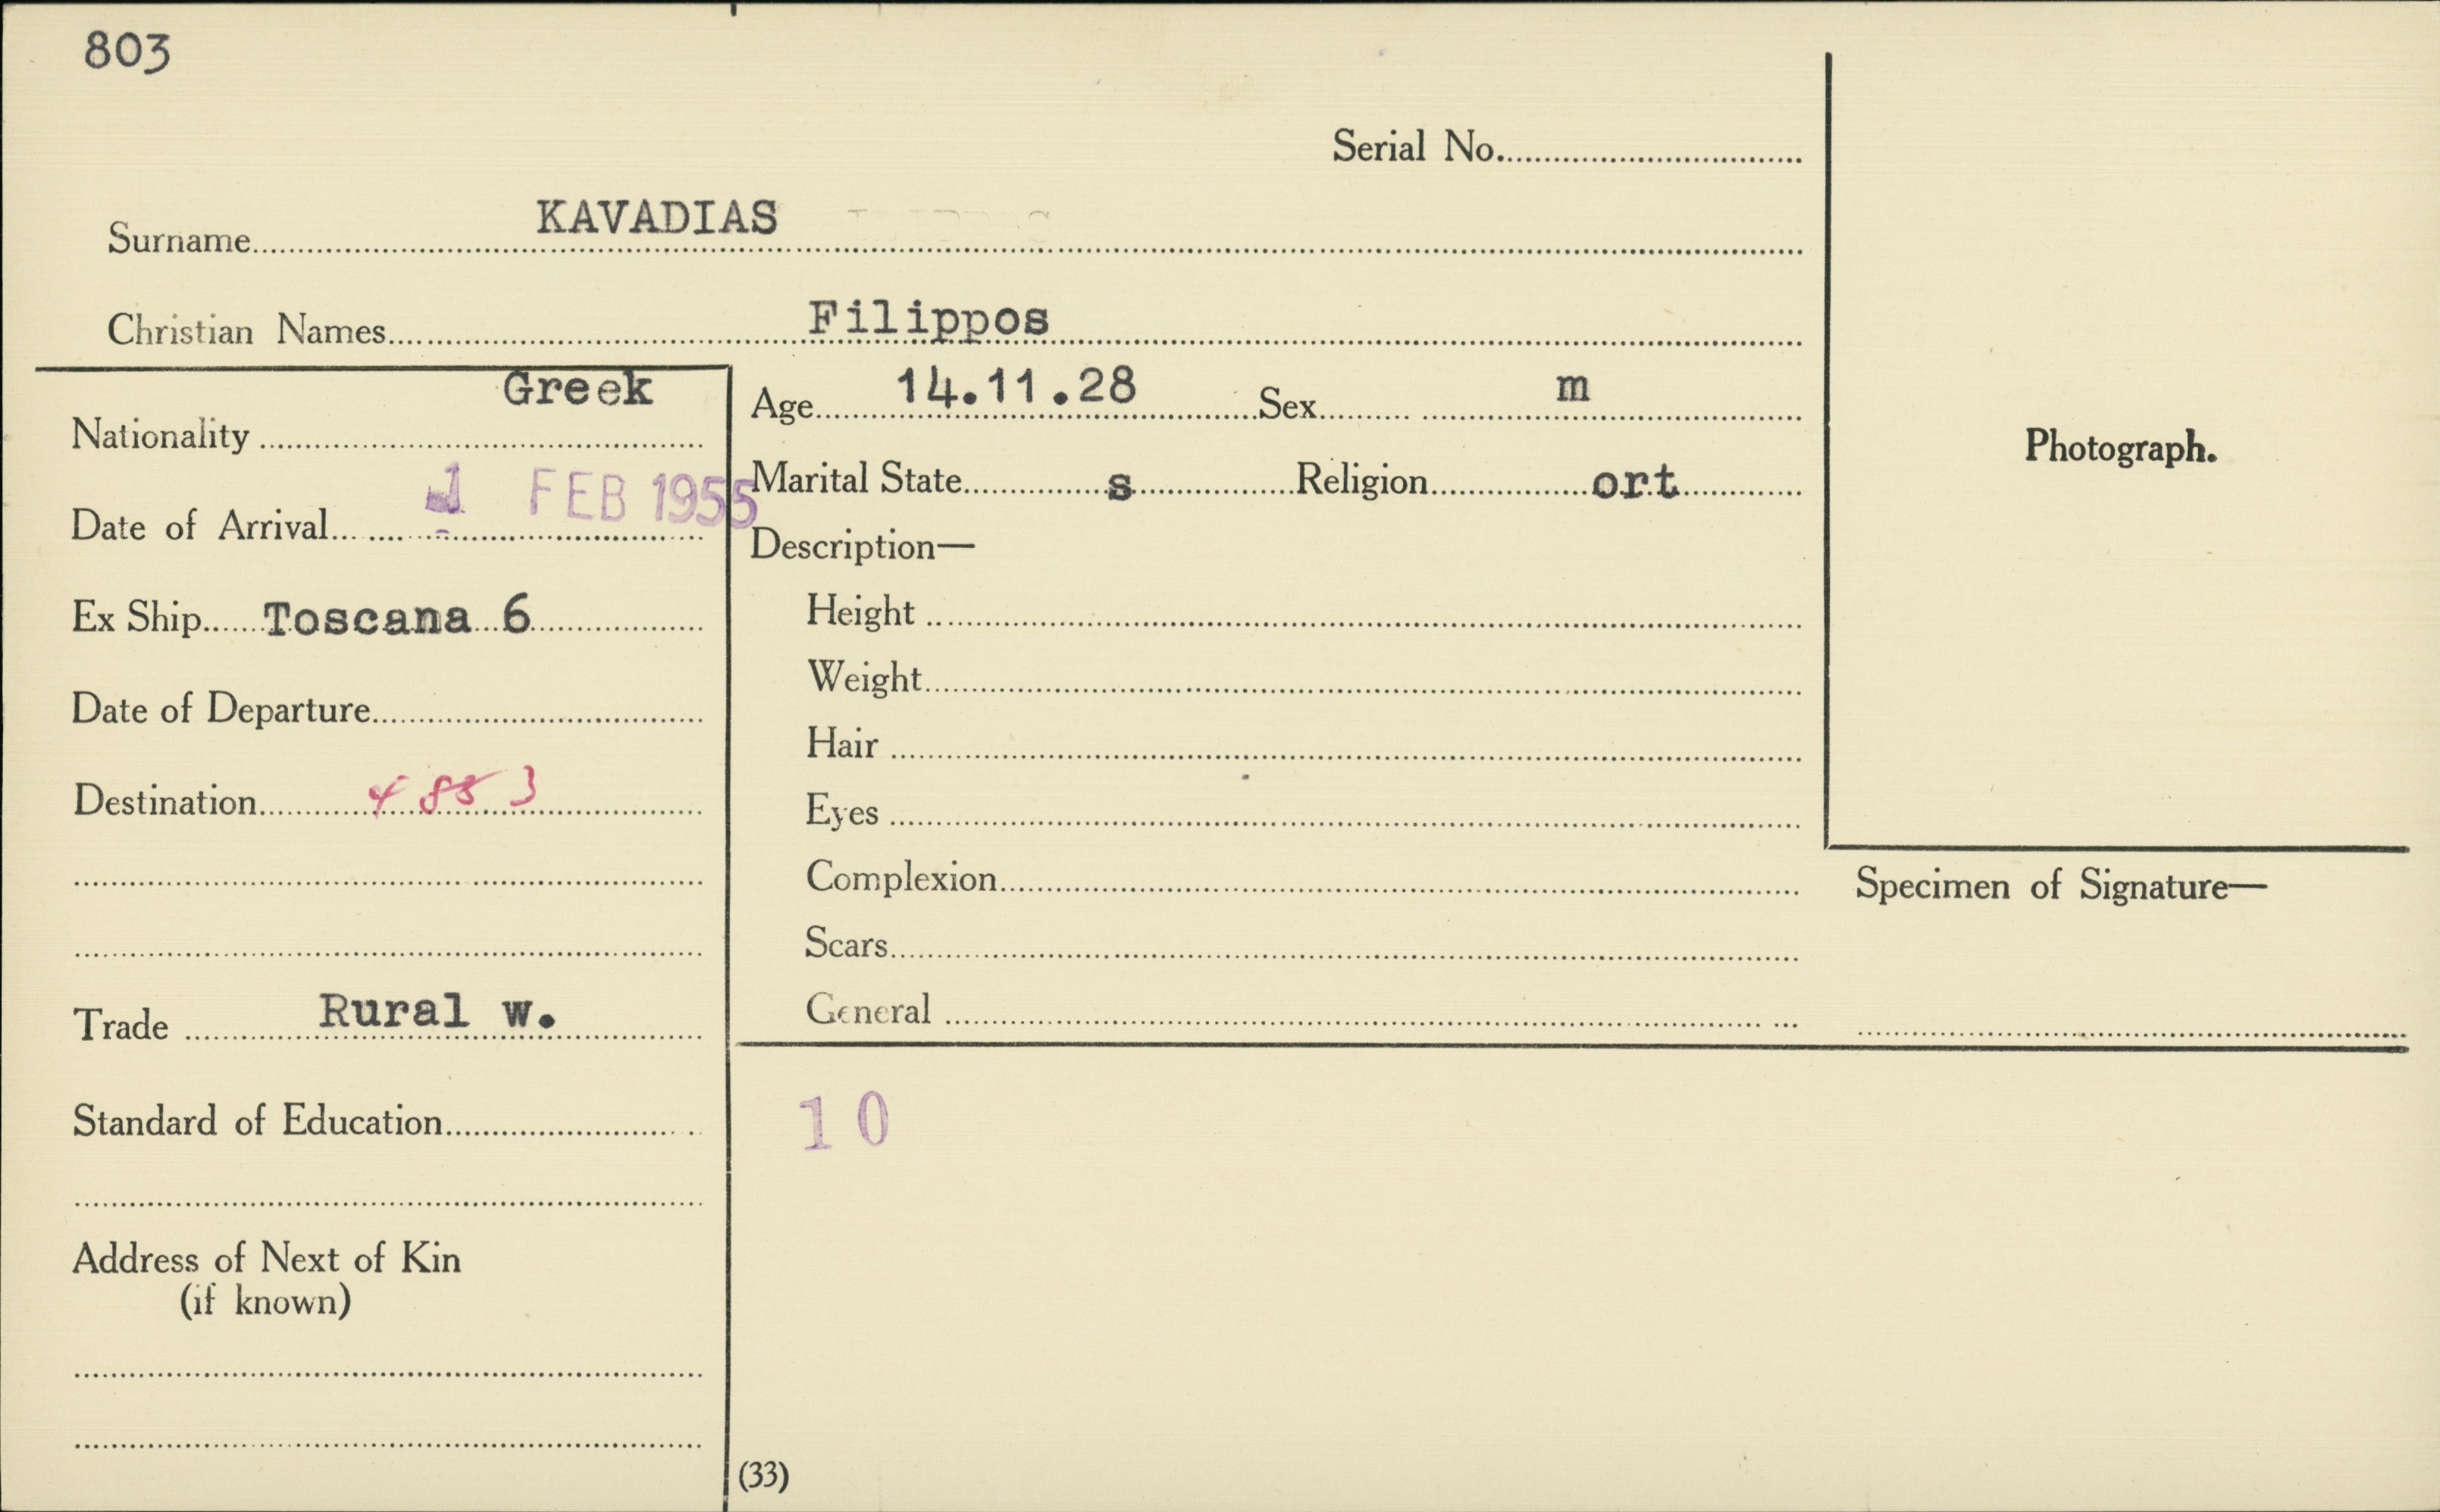 803
Serial No.
Surname KAVADIAS
Christian Names Filippos
Nationality Greek
Date of Arrival 1 FEB 1955
Ex Ship Toscana 6
Date of Departure
Destination
Trade Rural w.
Standard of Education
Address of Next of Kin
(if known)
Age 14.11.28 Sex m
Marital State s Religion ort
Description—
Height
Weight
Hair
Eyes
Complexion
Scars
General
10
(33)
Photograph.
Specimen of Signature—